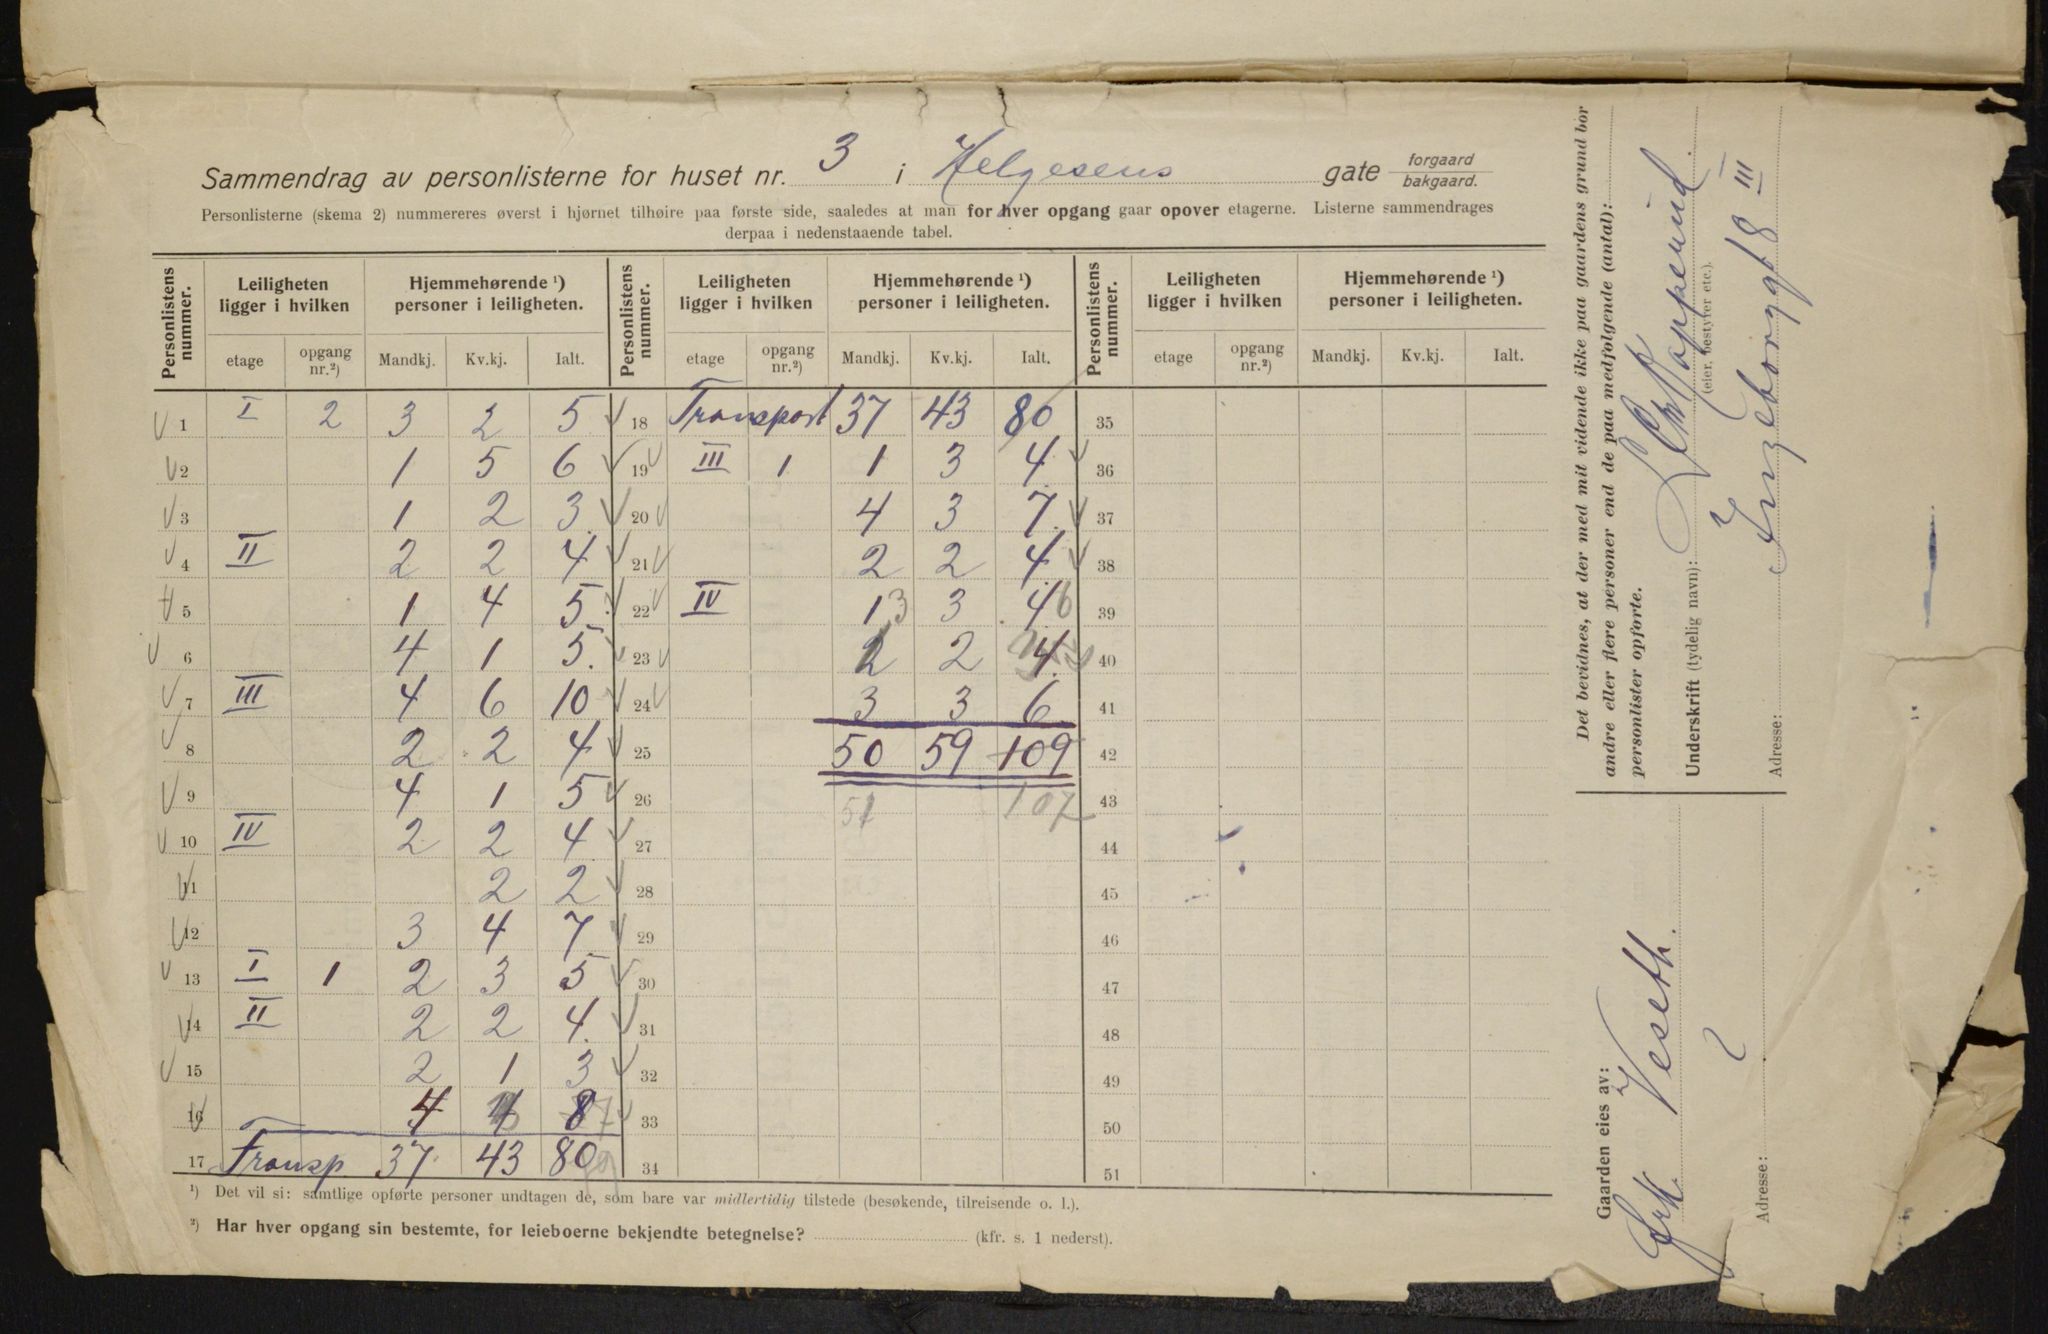 Sammendrag av personlisterne for huset nr. 3 i Helgesens gate forgaard bakgaard.
Personlisterne (skema 2) nummereres øverst i hjørnet tilhøire paa første side, saaledes at man for hver opgang gaar opover etagerne. Listerne sammendrages
derpaa i nedenstaaende tabel.
Personlistens nummer. Leiligheten ligger i hvilken Hjemmehørende ¹) personer i leiligheten. Personlistens nummer. Leiligheten ligger i hvilken Hjemmehørende ¹) personer i leiligheten. Personlistens nummer. Leiligheten ligger i hvilken Hjemmehørende ¹) personer i leiligheten.
etage opgang nr.²) Mandkj. Kv.kj. Ialt. etage opgang nr.²) Mandkj. Kv.kj. Ialt. etage opgang nr.²) Mandkj. Kv.kj. Ialt.
1 I 2 3 2 5 18 Transport 37 43 80 35
2 1 5 6 19 III 1 1 3 4 36
3 1 2 3 20 4 3 7 37
4 II 2 2 4 21 2 2 4 38
5 1 4 5 22 IV 1 3 3 4 6 39
6 4 1 5 23 2 2 4 40
7 III 4 6 10 24 3 3 6 41
8 2 2 4 25 50 59 109 42
9 4 1 5 26 51 107 43
10 IV 2 2 4 27 44
11 2 2 28 45
12 3 4 7 29 46
13 I 1 2 3 5 30 47
14 II 2 2 4 31 48
15 2 1 3 32 49
16 4 4 8 7 33 50
17 Transp 37 43 80 34 51
¹) Det vil si: samtlige opførte personer undtagen de, som bare var midlertidig tilstede (besøkende, tilreisende o. l.).
²) Har hver opgang sin bestemte, for leieboerne bekjendte betegnelse? (kfr. s. 1 nederst).
Det bevidnes, at der med mit vidende ikke paa gaardens grund bor
andre eller flere personer end de paa medfølgende (antal):
personlister opførte.
Underskrift (tydelig navn):
(eier, bestyrer etc.).
Adresse: Ingeborggt 8 III
Gaarden eies av:
Frk. Veseth.
Adresse: 2